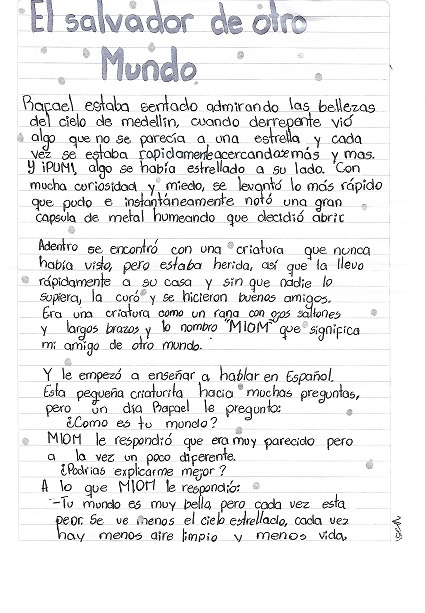 El salvador de otro
Mundo
Rapael estaba sentado admirando las bellezas
del cielo de medellin, cuando derrepante vió
algo que no se parecía a una estrella, y cada
vez se estaba rapidamente acercandose más y mas.
Y ¡PUM!, algo se había estrellado a su lado. Con
mucha curiosidad y miedo, se levantó lo más rápido
que pudo e instantáneamente notó una gran
capsula de metal humeando que decidió abrir
Adentro se encontró con una criatura que nunca
había visto, pero estaba herida, así que la llevo
rápidamente a su casa y sin que nadie lo
supiera, la curó y se hicieron buenos amigos.
Era una criatura como un rana con ojos saltones
y largos brazos y lo nombro "MIOM" que significa
mi amigo de otro mundo.
Y le empezó a enseñar a hablar en Español.
Esta pequeña criaturita hacia muchas preguntas,
pero un día Rapael le pregunto:
¿Como es tu mundo?
MIOM le respondió que era muy parecido pero
a la vez un poco diferente.
¿Podrias explicarme mejor?
A lo que MIOM le respondió:
-Tu mundo es muy bello pero cada vez esta
peor. Se ve menos el cielo estrellado, cada vez
hay menos aire limpio y menos vida,